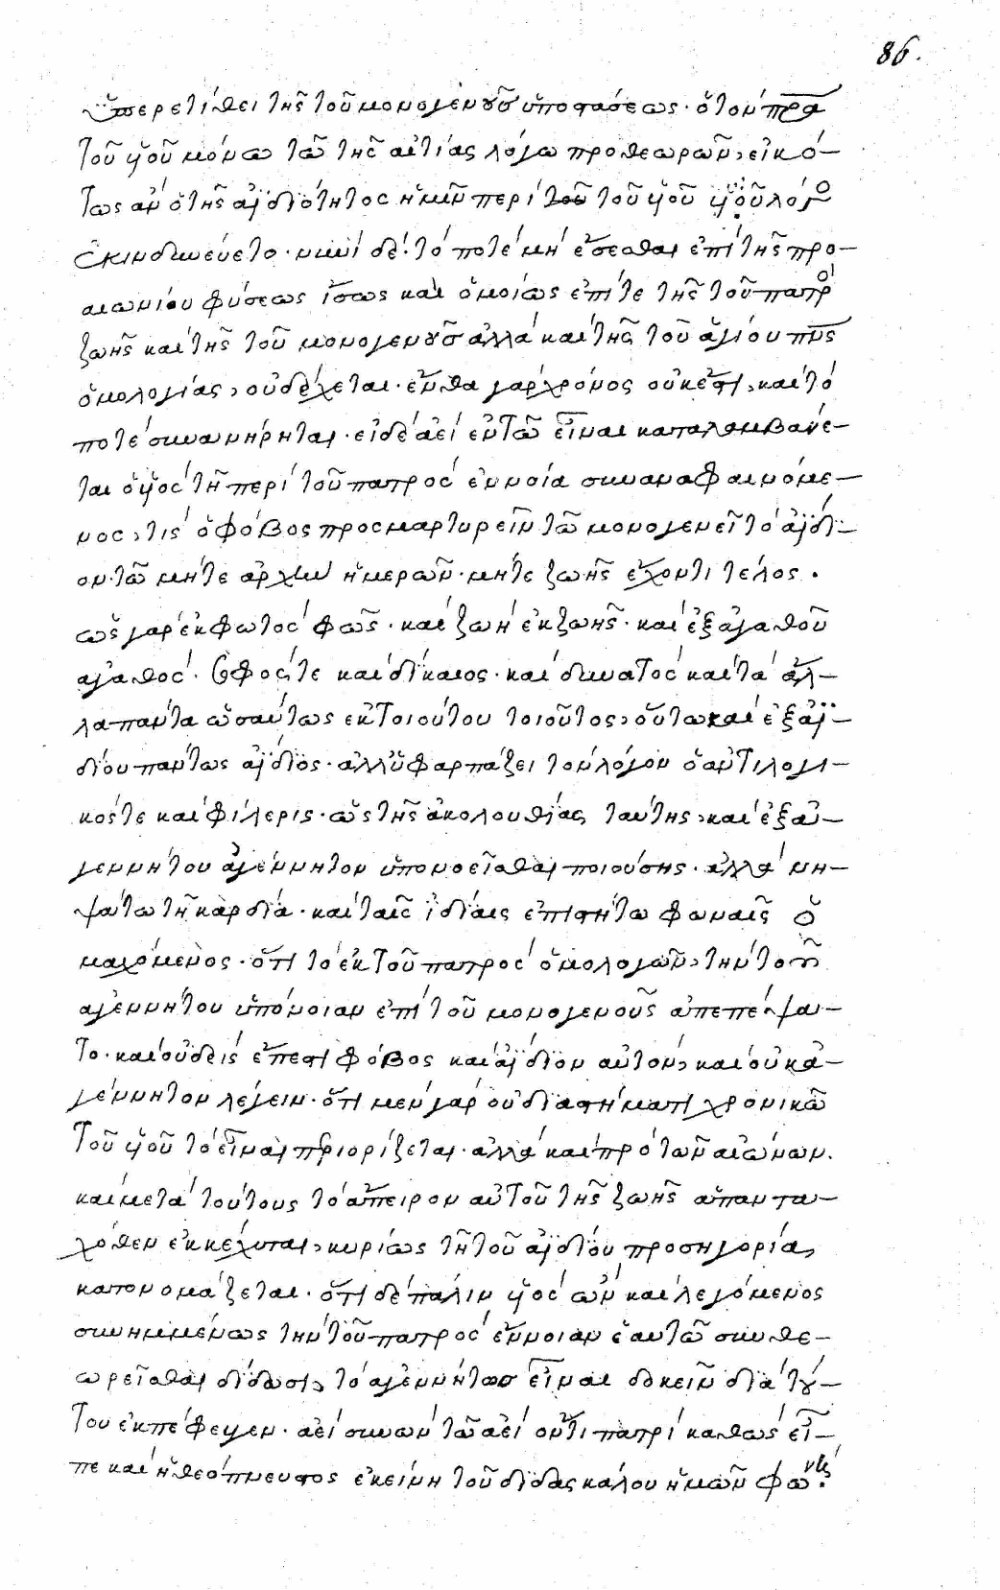 86.
ὑπερετίθει τῆς τοῦ μονογενοῦς ὑποστάσεως· ὅτον πρα
τοῦ υἱοῦ μόνω τῶ τῆς αἰτίας λόγω προθεωρῶν, εἰκό–
τως ἂν ὁ τῆς ἀϊδιότητος ἡμῖν περὶ τοῦ τοῦ υἱοῦ λόγο
ἐκινδυνεύετο· νυνὶ δέ· τό ποτὲ μὴ ἔσεσθαι ἐπὶ τῆς προ–
αιωνίου φύσεως ἴσως καὶ ὁμοίως ἐπί τε τῆς τοῦ πατρὸ
ζωῆς καὶ τῆς τοῦ μονογενοῦς ἀλλὰ καὶ τῆς τοῦ ἁγίου πνς
ὁμολογίας, οὐ δέχεται· ἔνθα γὰρ χρόνος οὐκ ἔστι, καὶ τό
ποτὲ συνανήρηται· εἰ δὲ ἀεὶ ἐν τῶ εἶναι καταλαμβάνε–
ται ὁ υἱὸς τῆ περὶ τοῦ πατρὸς ἐννοία συναναφαινόμε–
νος, τίς ὁ φόβος προσμαρτυρεῖν τῶ μονογενεῖ τὸ ἀΐδι–
ον· τῶ μήτε ἀρχὴν ἡμερῶν· μήτε ζωῆς ἔχοντι τέλος.
ὡς γὰρ ἐκ φωτὸς φῶς· καὶ ζωὴ ἐκ ζωῆς· καὶ ἐξ ἀγαθοῦ
ἀγαθός· σοφός τε καὶ δίκαιος· καὶ δυνατὸς καὶ τὰ ἄλ–
λα πάντα ὡσαύτως ἐκ τοιούτου τοιοῦτος, οὕτω καὶ ἐξ ἀϊ–
δίου πάντως ἀΐδιος· ἀλλ' ὑφαρπάζει τὸν λόγον ὁ ἀντιλογι–
κός τε καὶ φίλερις· ὡς τῆς ἀκολουθίας ταύτης, καὶ ἐξ ἀ–
γεννήτου ἀγέννητον ὑπονοεῖσθαι ποιούσης· ἀλλὰ νη–
ψάτω τῆ καρδία· καὶ ταῖς ἰδίαις ἐπιστήτω φωναῖς ὁ
μαχόμενος· ὅτι τὸ ἐκ τοῦ πατρὸς ὁμολογῶν, τὴν τοῦ
ἀγεννήτου ὑπόνοιαν ἐπὶ τοῦ μονογενοῦς ἀπεπέμψα–
το· καὶ οὐδεὶς ἔπεστι φόβος καὶ ἀΐδιον αὐτόν, καὶ οὐκ ἀ–
γέννητον λέγειν· ὅτι μὲν γὰρ οὐ διαστήματι χρονικῶ
τοῦ υἱοῦ τὸ εἶναι περιορίζεται· ἀλλὰ καὶ πρὸ τῶν αἰώνων.
καὶ μετὰ τούτους τὸ ἄπειρον αὐτοῦ τῆς ζωῆς ἁπαντα–
χόθεν ἐκκέχυται, κυρίως τῆ τοῦ ἀϊδίου προσηγορία,
κατονομάζεται· ὅτι δὲ πάλιν υἱὸς ὢν καὶ λεγόμενος
συνημμένως τὴν τοῦ πατρὸς ἔννοιαν ἑαυτῶ συνθε–
ωρεῖσθαι δίδωσι, τὸ ἀγεννήτως εἶναι δοκεῖν διὰ τού–
του ἐκπέφευγεν· ἀεὶ συνὼν τῶ ἀεὶ ὄντι πατρὶ καθὼς εἶ–
πε καὶ ἡ θεόπνευστος ἐκείνη τοῦ διδασκάλου ἡμῶν φωνή.